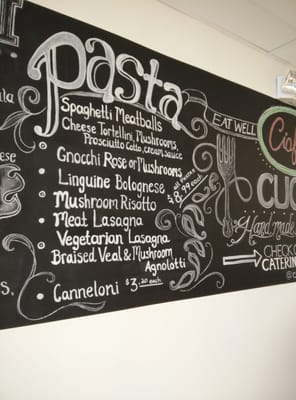 pasta
Spaghetti Meatballs
Cheese Tortellini, Mushrooms,
Prosciutto Cotto, cream sauce
Gnocchi Rose or Mushrooms
Linguine Bolognese
Mushroom Risotto
Meat Lasagna
Vegetarian Lasagna
Braised Veal & Mushroom
Agnolotti
Canneloni $3.20 each
all pastas
$8.99 each
EAT WELL
Hand made
CHECK O
CATERIN